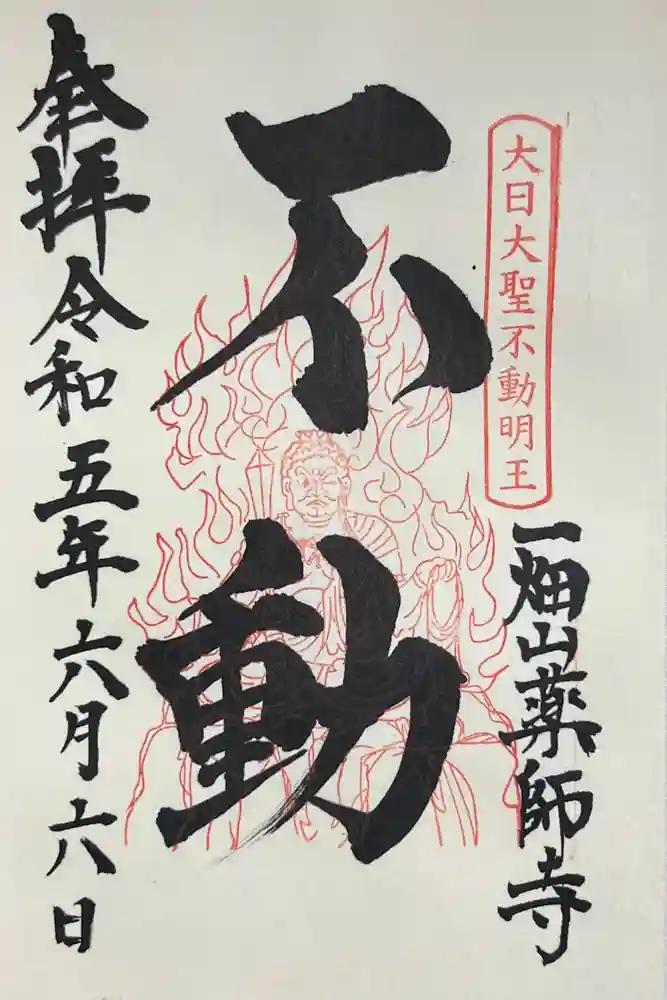 大日大聖不動明王
一畑山薬師寺
不動
奉拝 令和五年六月六日